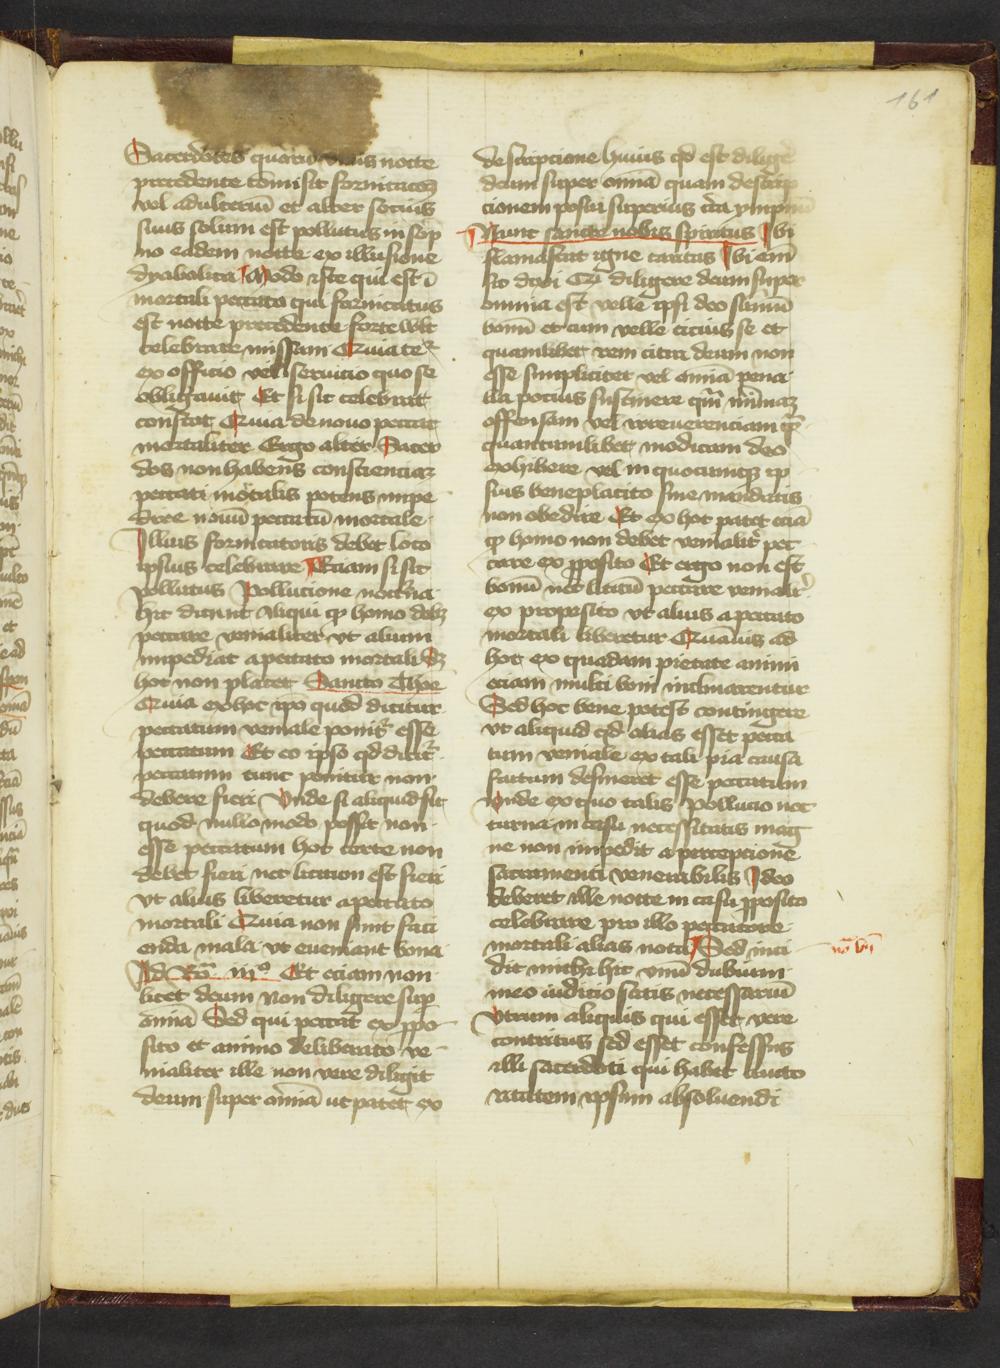 161
Sacerdotes quorum unus nocte
precedente comisit fornicacōeꝫ
vel adulteriū et alter socius
suus solum est pollutus in sōp
no eadem nocte ex illusione
dyabolica Modo iste qui est ī
mortali peccato qui fornicatus
est nocte precedente forte vult
celebrare missam Quia tenetur
ex officio vel servicio quo se
obligauit Et si sic celebrat
constat Quia de nouo peccat
mortaliter Ergo alter Sacer
dos non habens conscienciaꝫ
peccati mortalis potens impe
dire nouū peccatū mortale
Illius fornicatoris debet loco
ipsius celebrare Eciam si sit
pollutus Pollucione nocturna
hic dicunt Aliqui qꝫ homo debꝫ
peccare venialiter vt alium
impediat a peccato mortali Sꝫ
hoc non placet Sancto Thoe
Quia ex hoc ipō quod dicitur
peccatum veniale ponitr̄ esse
peccatum Et eo ipso qd̄ dicitr̄
peccatum tunc ponitur non
debere fieri Unde si aliquid sit
quod nullo modo possit non
esse peccatum hoc certe non
debet fieri nec licitum est fieri
vt alius liberetur a peccato
mortali Quia non sunt faci
enda mala vt eueniant bona
Ad Rō iii⁰ Et eciam non
licet deum non diligere sup
om̄ia Sed qui peccat ex ppo
sito et animo deliberato ve
nialiter ille non vere diligit
deum super om̄ia ut patet ex
descripcione huius qd̄ est diligere
deum super om̄ia quam descrip
cionem posui superius circa ympnū
Nunc sancte nobis spiritus Ibi
flamascat igne caritas Ibi enī
sic dixi Qꝫ diligere deum super
omnia est velle ipsi deo summū
bonū et eum velle cicius se et
quamlibet rem citra deum non
esse simpliciter vel om̄ia pena
lia pocius sustinere qm̄ minimaꝫ
offensam vel irreuerenciam
quantumlibet modicam deo
exhibere vel in quocumqꝫ ip
sius beneplacito siue mandatis
non obedire Et ex hoc patet eciā
qꝫ homo non debet venialitr̄ pec
care ex pposito Et ergo non est
bonū nec licitū peccare venialitr̄
ex proposito vt alius a peccato
mortali liberetur Quāuis ad
hoc ex quadam pietate animi
eciam multi boni inclinarentur
Sed hoc bene potest contingere
vt aliquid qd̄ alias esset pecca
tum veniale ex tali pia causa
factum desineret esse peccatum
Unde ex quo talis pollucio noc
turna in casu necessitatis mag
ne non impedit a percepcione
sacramenti venerabilis Ideo
deberet ille nocte in casu pposito
celebrare pro illo peccatore
mortali alias nota Sed inci
dit michi hic vnū dubium
meo iudicio satis necessariū
Vtrum aliquis qui esset vere
contritus sed esset confessus
illi sacerdoti qui habet aucto
ritatem ipsum absoluendi